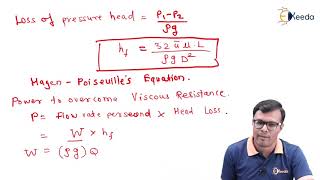 Ekeeda
Loss of pressure head = P₁-P₂ / ρg
h_f = 32 ū μ. L / ρg D²
Hagen - Poiseuille's Equation.
Power to overcome Viscous Resistance.
P = flow rate per second × Head Loss.
= W × h_f
W = (ρg) Q